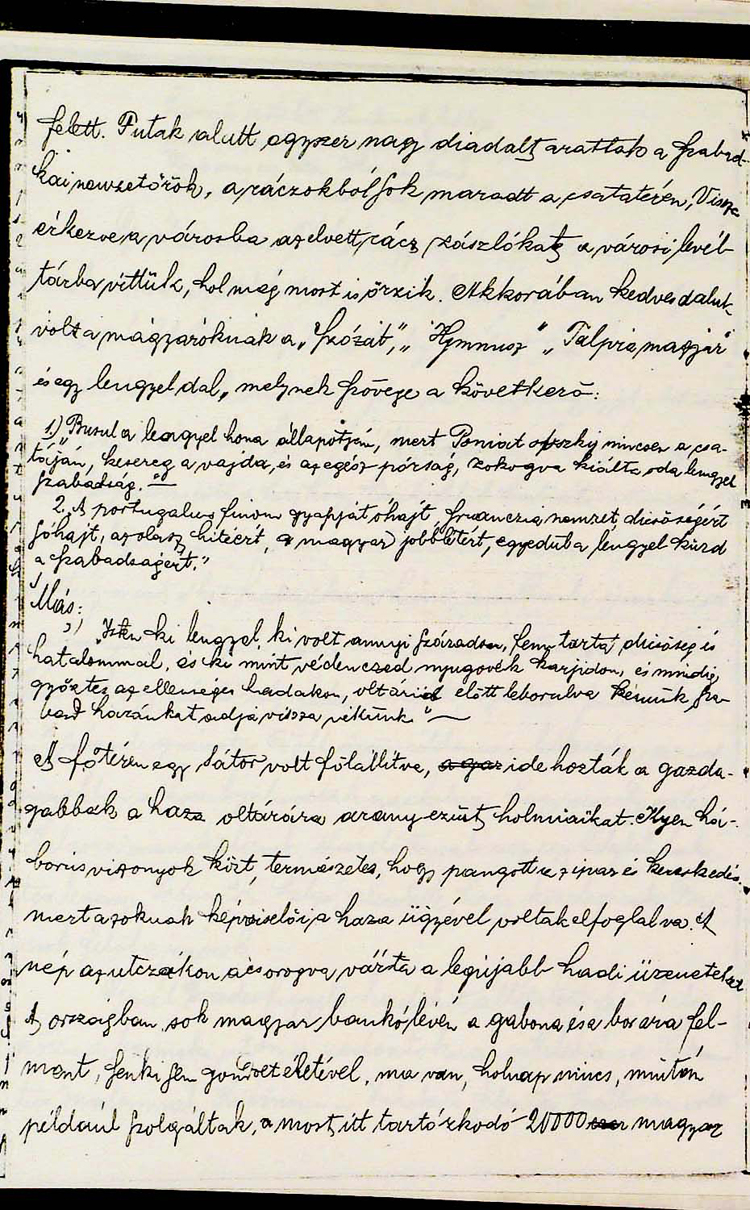 felett. Futak alatt egyszer nagy diadalt arattak a szabad-
kai nemzetőrök, a ráczokból sok maradt a csatatéren, Vissza
érkezve a városba az elvett rácz zászlókat a városi levél
tárba vittük, hol még most is őrzik. Akkorában kedves daluk
volt a magyaroknak a „Szózat", „Hymnusz" „Talpra magyar"
és egy lengyel dal, melynek szövege a következő:
1) „Busul a lengyel hona állapotján, mert Poniatovszky nincsen a csa-
táján, kesereg a vajda, és az egész pórság, zokogva kiálta oda lengyel
szabadság." —
2. A portugallus finom gyapját óhajt francziai nemzet dicsőségért
sóhajt, az olasz hitéért, a magyar jobblétért, egyedül a lengyel küzd
a szabadságért."
Más:
„Isten ki lengyel, ki volt annyi századon, fenn tarta dicsőség és
hatalommal, és ki mint védenczed nyugovék karjidon, és mindég
győztes az ellenséges hadakon, oltárid előtt leborulva kérünk sza-
bad hazánkat adja vissza nékünk" —
A főtéren egy sátor volt fölállitva, ide hozták a gazda-
gabbak a haza oltárára arany ezüst holmiaikat. Ilyen há-
borús viszonyok közt, természetes, hogy pangott az ipar és kereskedés,
mert azoknak képviselői a haza ügyével voltak elfoglalva. A
nép az utczákon ácsorogva várta a legújabb hadi üzeneteket
Az országban sok magyar bankó lévén a gabona és a bor ára fel-
ment, senki sem gondolt életével, ma van, holnap nincs, miután
például szolgáltak, a most itt tartózkodó 20000 magyar